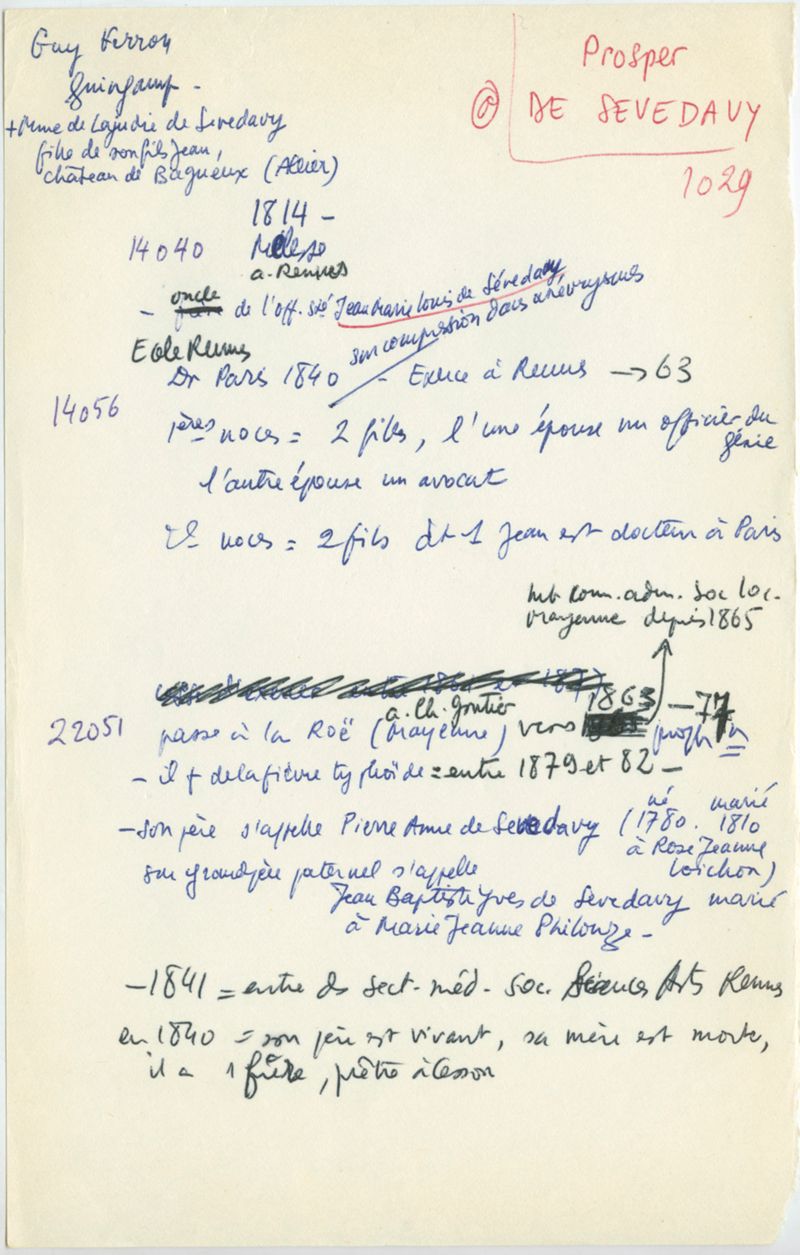 Guy Verron
Guingamp -
+ Mme de Lajudie de Sevedavy
fille de son fils Jean,
château de Bagneux (Allier)
Prosper
DE SEVEDAVY
1029
1814 -
14040 Melesse
a. Rennes
- oncle de l'off. sté Jean Marie Louis de Sévedavy
sur compression dans anévrysmes
Ecole Rennes
Dr Paris 1840 - Exerce à Rennes → 63
14056
1ères noces = 2 filles, l'une épouse un officier du
génie
l'autre épouse un avocat
2e noces = 2 fils dt 1 Jean est docteur à Paris
mb com. adm. Soc loc.
Mayenne depuis 1865
a. Ch. Gontier 1863 - 77
22051 passe à la Roë (Mayenne) vers
- il + de la fièvre typhoïde = entre 1879 et 82 -
- son père s'appelle Pierre Anne de Sevedavy (né 1780. marié 1810
à Rose Jeanne
Loichon)
son grand père paternel s'appelle
Jean Baptiste Yves de Sevedavy marié
à Marie Jeanne Philouze -
- 1841 = entre ds sect. méd. Soc. Sciences Arts Rennes
en 1840 = son père est vivant, sa mère est morte,
il a 1 frère, prêtre à Cesson